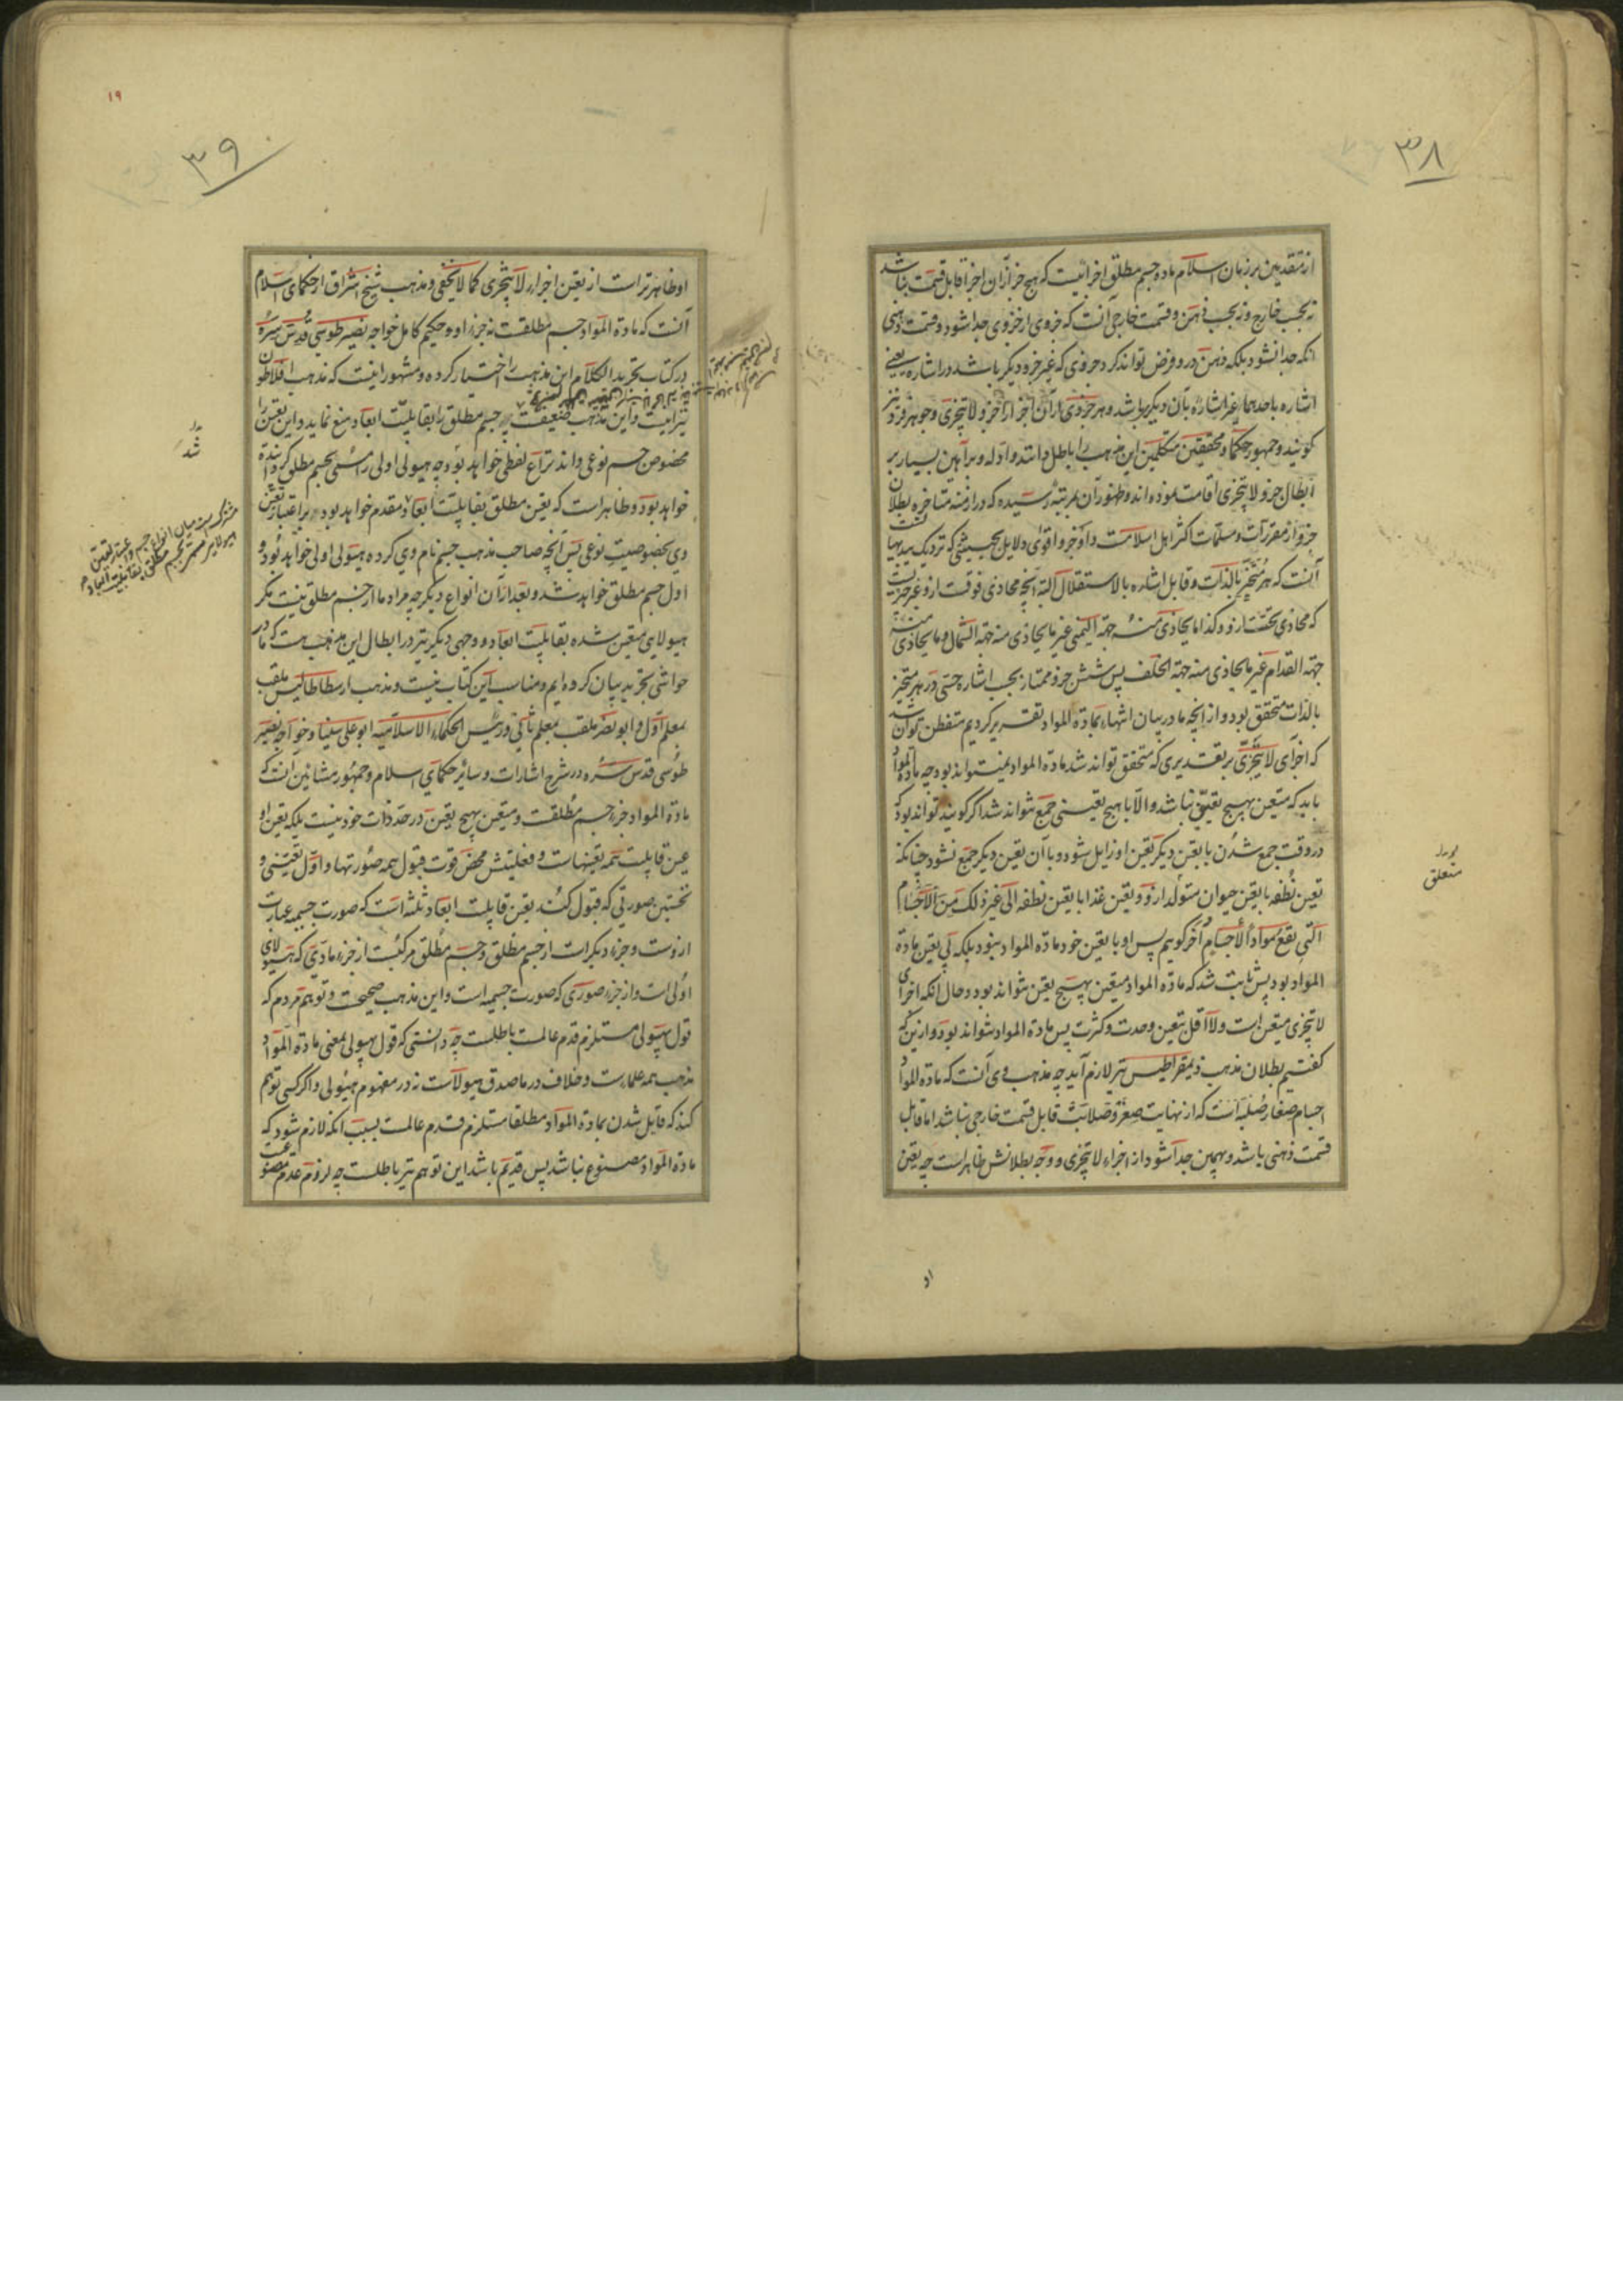 ۳۸
از متقدمین بر زبان اسلام ماده جسم مطلق اجزائیست که هیچ جزء از آن اجزا قابل قسمت نباشد
نه بحسب خارج و نه بحسب ذهن و قسمت خارجی آنست که جزوی از جزوی جدا شود و قسمت ذهنی
آنکه جدا نشود بلکه ذهن در و فرض تواند کرد جزوی که غیر جزو دیگر باشد در اشاره یعنی
اشاره باحدهما غیر اشاره بآن دیگر باشد و هر جزوی از آن اجزا را جزو لا یتجزی و جوهر فرد نیز
کویند و جمهور حکما و محققین متکلمین این مذهب را باطل دانند و ادله و براهین بسیار بر
ابطال جزو لا یتجزی اقامت نموده اند و ظهور آن بمرتبه رسیده که در ازمنه متاخره بطلان
جزو از مقررات و مسلمات اکثر اهل اسلامست و اوجز و اقوای دلایل بحیثیتی که نزدیک ببدیهیات
آنست که هر متحیز بالذات و قابل اشاره بالاستقلال البته آنچه محاذی فوقست ازو غیر جزئیست
که محاذی تحتست ازو و کذا ما یحاذی منه جهة الیمنی غیر ما یحاذی منه جهة الشمال و ما یحاذی منه
جهة القدام غیر ما یحاذی منه جهة الخلف پس شش جزو ممتاز بحسب اشاره حسی در هر متحیز
بالذات متحقق بود و از آنچه ما در بیان انتهاء بمادة المواد تقریر کردیم متفطن توان شد
که اجزای لا یتجزی بر تقدیری که متحقق تواند شد مادة المواد نمیتواند بود چه مادة المواد
باید که متعین بهیچ تعین نباشد و الا با هیچ تعینی جمع نتواند شد اگر کویند تواند بود که
در وقت جمع شدن با تعین دیگر تعین او زایل شود و با آن تعین دیگر جمع نشود چنانکه
تعین نطفه با تعین حیوان متولد از و و تعین غذا با تعین نطفه الی غیر ذلک من الاجسام
التی یقع مواد الأجسام أخر کویم پس او با تعین خود مادة المواد نبود بلکه بی تعین مادة
المواد بود پس ثابت شد که مادة المواد متعین بهیچ تعین نتواند بود و حال آنکه اجزای
لا یتجزی متعین است و لا اقل بتعین وحدت و کثرت پس مادة المواد نتواند بود و ازین که
کفتیم بطلان مذهب ذیمقراطیس نیز لازم آید چه مذهب وی آنست که مادة المواد
اجسام صغار صلبه است که از نهایت صغر و صلابت قابل قسمت خارجی نباشد اما قابل
قسمت ذهنی باشد و بهمین جدا شود از اجزاء لا یتجزی و وجه بطلانش ظاهر است چه تعین
متعلق
او
۱۹
۳۹
او ظاهرتر است از تعین اجزاء لا یتجزی کما لا یخفی و مذهب شیخ اشراق از حکمای اسلام
آنست که مادة المواد جسم مطلقست نه جزء او و حکیم کامل خواجه نصیر طوسی قدس سره
در کتاب تجرید الکلام این مذهب را اختیار کرده و مشهور اینست که مذهب افلاطون
نیز اینست و این مذهب ضعیفست چه جسم مطلق را بقابلیت ابعاد منع نماید و این تعین را
مخصوص جسم نوعی داند نزاع لفظی خواهد بود چه هیولی اولی را مسمی بجسم مطلق کردانیده
خواهد بود و ظاهر است که تعین مطلق بقابلیت ابعاد مقدم خواهد بود بر اعتبار تعین
وی بخصوصیت نوعی پس آنچه صاحب مذهب جسم نام وی کرده هیولی اولی خواهد بود و
اول جسم مطلق خواهد شد و بعد از آن انواع دیگر چه مراد ما از جسم مطلق نیست مگر
هیولای متعین شده بقابلیت ابعاد و وجهی دیگر نیز در ابطال این مذهب هست که ما در
حواشی تجرید بیان کرده ایم و مناسب این کتاب نیست و مذهب ارسطاطالیس ملقب
بمعلم اول و ابو نصر ملقب بمعلم ثانی و رئیس الحکماء الاسلامیه ابو علی سینا و خواجه نصیر
طوسی قدس سره در شرح اشارات و سایر حکمای اسلام و جمهور مشائین آنست که
مادة المواد جزء جسم مطلقست و متعین بهیچ تعین در حد ذات خود نیست بلکه تعین او
عین قابلیت همه تعینهاست و فعلیتش محض قوت قبول همه صورتها و اول تعینی و
نخستین صورتی که قبول کند تعین قابلیت ابعاد ثلثه است که صورت جسمیه عبارت
ازوست و جزء دیگر است از جسم مطلق و جسم مطلق مرکبست از جزء مادی که هیولای
اولی است و از جزء صوری که صورت جسمیه است و این مذهب صحیحست و توهم مردم که
قول بهیولی مستلزم قدم عالمست باطلست چه دانستی که قول بهیولی بمعنی مادة المواد
مذهب همه علماست و خلاف در ما صدق هیولاست نه در مفهوم هیولی و اگر کسی توهم
کند که قایل شدن بمادة المواد مطلقا مستلزم قدم عالمست بسبب آنکه لازم شود که
مادة المواد مصنوع نباشد پس قدیم باشد این توهم نیز باطلست چه لزوم عدم مصنوعیت
شد
مشترکست میان انواع جسم و اعتبار تعین